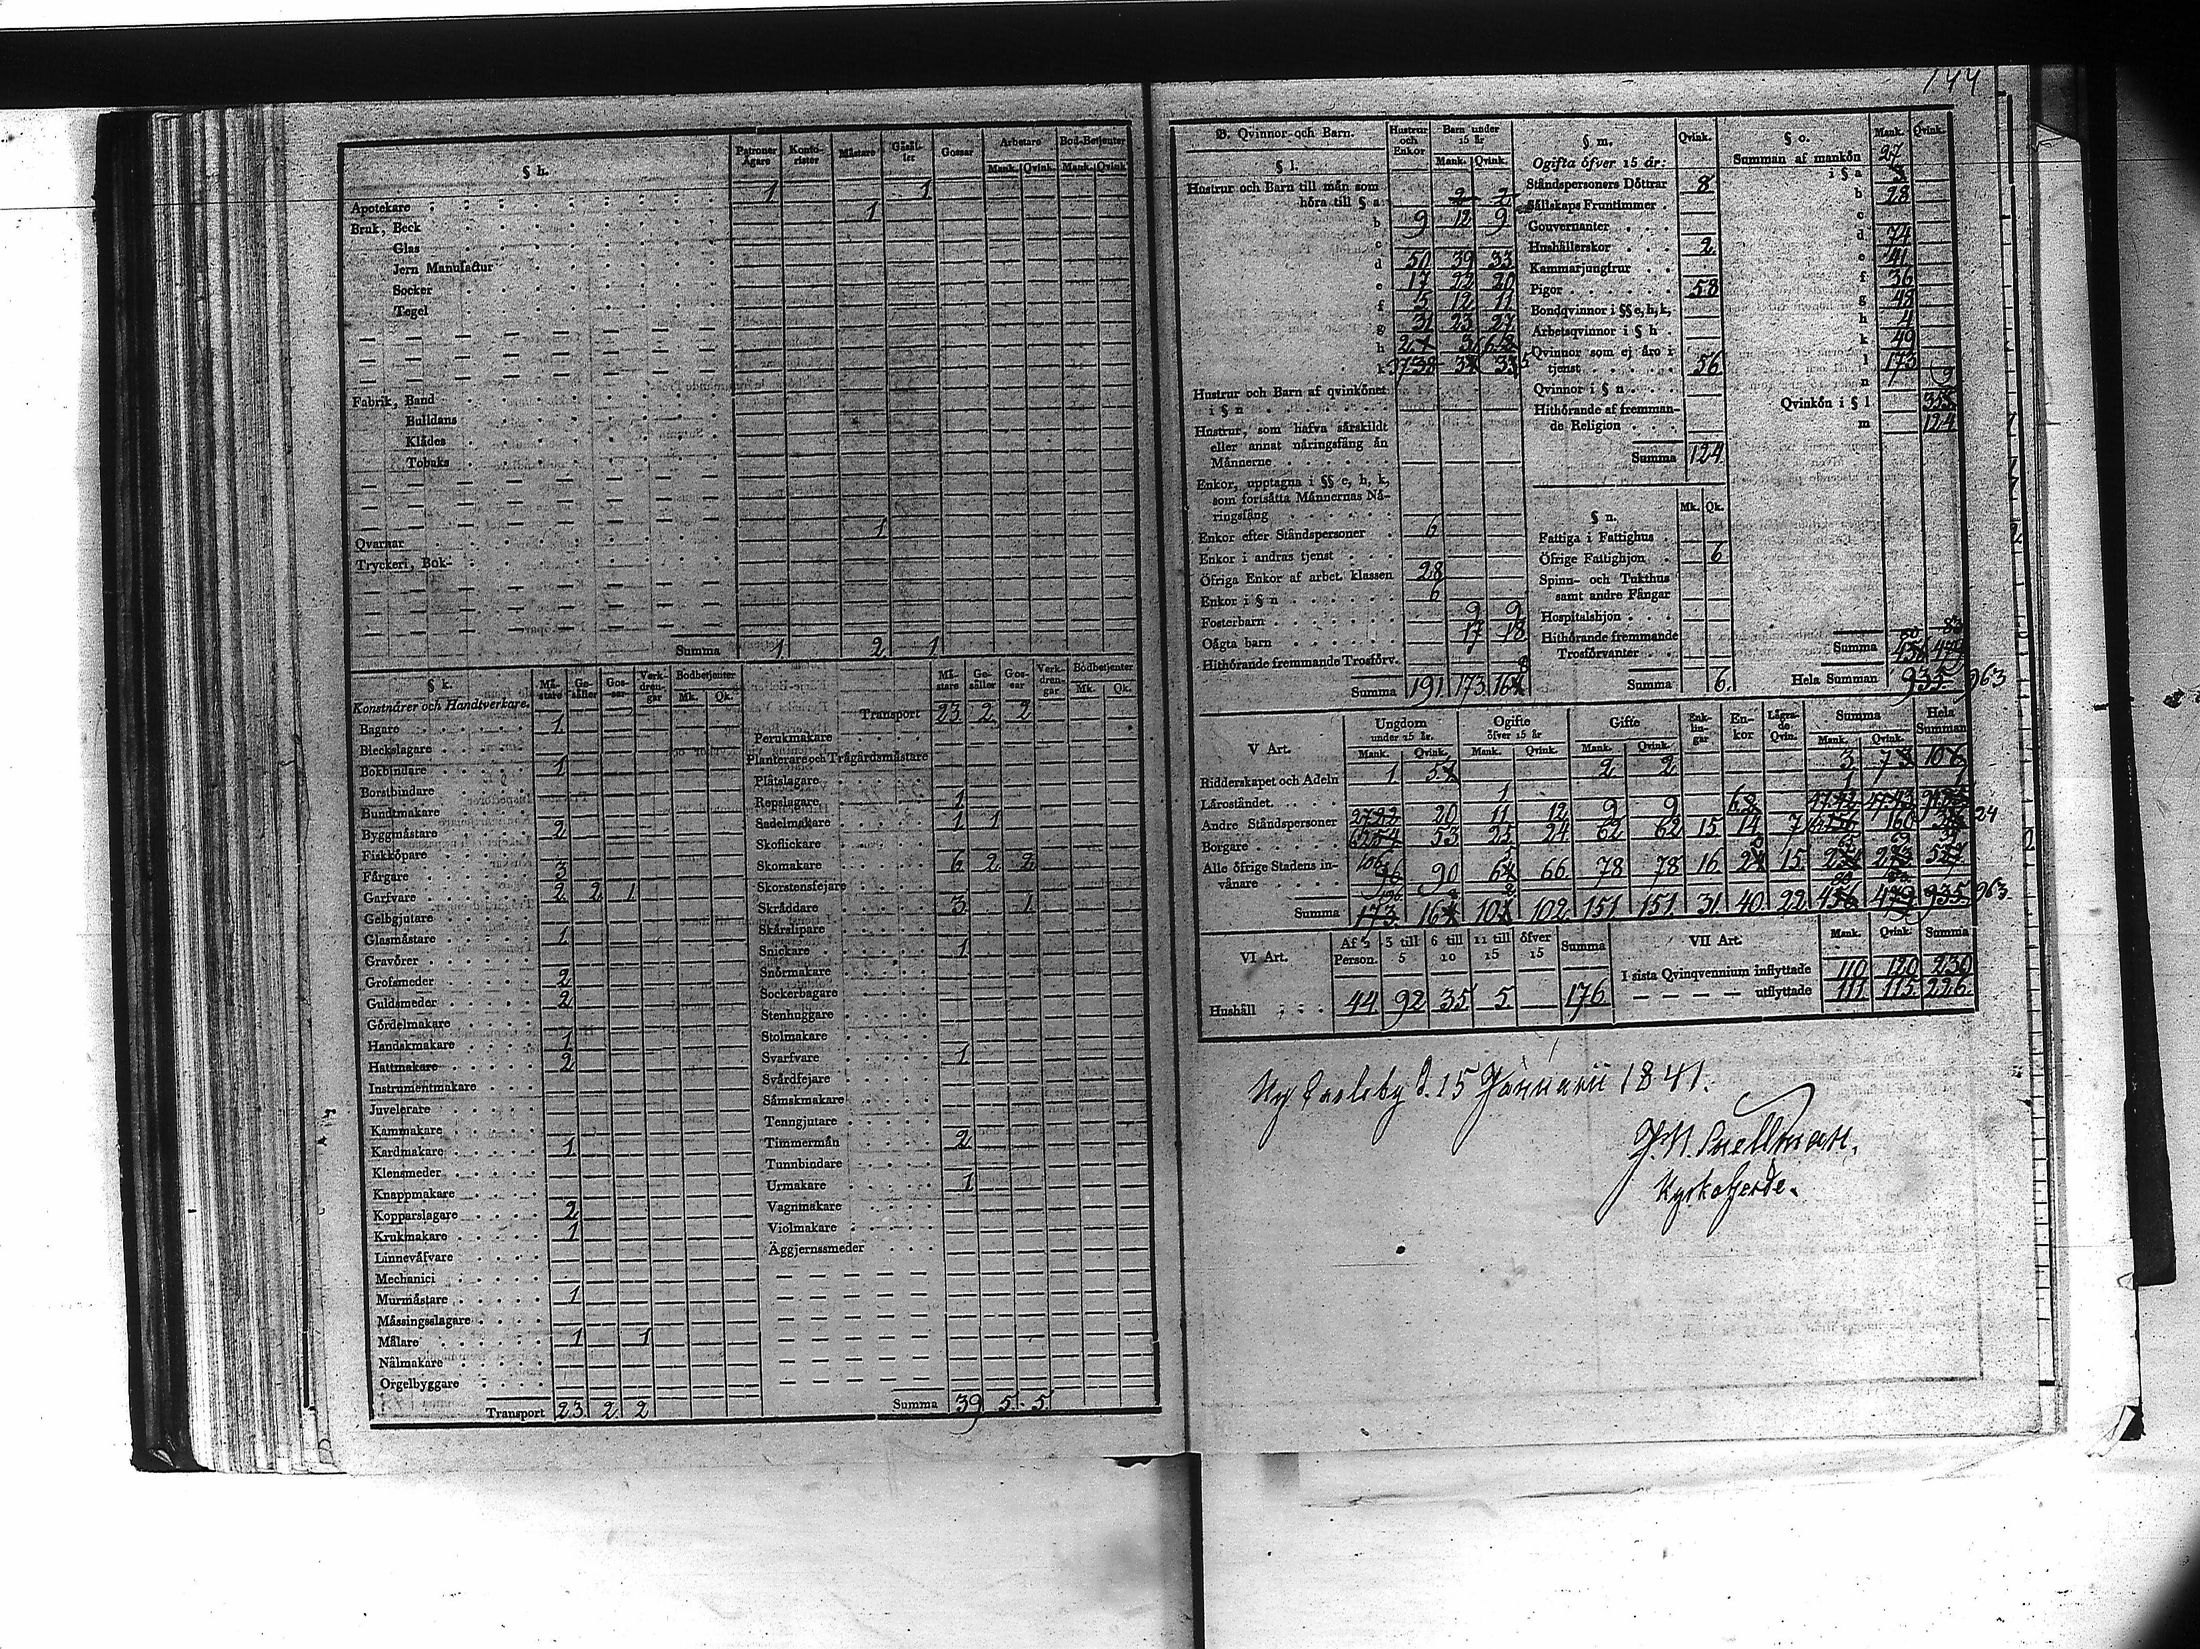 144
§ h.
Patroner Ågare
Konto-rister
Måstare
Gåsål-ler
Gossar
Arbetare
Bod-Betjenter
Mank. Qvink. Mank. Qvink
Apotekare 1 1
Bruk, Beck 1
Glas
Jern Manufactur
Socker
Tegel
Fabrik, Band
Bulldans
Klådes
Tobaks
Qvarnar 1
Tryckeri, Bok-
Summa 1 2 1
§ k.
Konstnårer och Handtverkare.
Må-stare
Ge-såller
Gos-sar
Verk-dren-gar
Bodbetjenter
Mk. Qk.
Bagare 1
Bleckslagare
Bokbindare 1
Borstbindare
Bundtmakare
Byggmåstare 2
Fiskköpare
Fårgare 3
Garfvare 2 2 1
Gelbgjutare
Glasmåstare 1
Gravörer
Grofsmeder 2
Guldsmeder 2
Gördelmakare
Handskmakare 1
Hattmakare 2
Instrumentmakare
Juvelerare
Kammakare
Kardmakare 1
Klensmeder
Knappmakare
Kopparslagare 2
Krukmakare 1
Linnevåfvare
Mechanici
Murmåstare 1
Måssingsslagare
Målare 1 1
Nålmakare
Orgelbyggare
Transport 23 2 2
Må-stare
Ge-såller
Gos-sar
Verk-dren-gar
Bodbetjenter
Mk. Qk.
Transport 23 2 2
Perukmakare
Planterare och Trågårdsmåstare
Plåtslagare
Repslagare 1
Sadelmakare 1 1
Skoflickare
Skomakare 6 2 2
Skorstensfejare
Skråddare 3 1
Skårslipare
Snickare 1
Snörmakare
Sockerbagare
Stenhuggare
Stolmakare
Svarfvare 1
Svårdfejare
Såmskmakare
Tenngjutare
Timmermån 2
Tunnbindare
Urmakare 1
Vagnmakare
Violmakare
Äggjernssmeder
Summa 39 5 5
B. Qvinnor och Barn.
Hustrur och Enkor
Barn under 15 år
Mank. Qvink.
§ l.
Hustrur och Barn till mån som
höra till § a 2 2
b 9 12 9
c
d 50 39 33
e 17 22 20
f 5 12 11
g 31 23 27
h
k
Hustrur och Barn af qvinkönet
i § n
Hustrur, som hafva sårskildt
eller annat nåringsfång ån
Månnerne
Enkor, upptagna i §§ e, h, k,
som fortsåtta Månnernas Nå-
ringsfång
Enkor efter Ståndspersoner 6
Enkor i andras tjenst
Öfriga Enkor af arbet. klassen 28
Enkor i § n 6
Fosterbarn 9 9
Oågta barn 17 18
Hithörande fremmande Trosförv.
Summa 191 173
§ m.
Qvink.
Ogifta öfver 15 år:
Ståndspersoners Döttrar 8
Sållskaps Fruntimmer
Gouvernanter
Hushållerskor 2
Kammarjungfrur
Pigor 58
Bondqvinnor i §§ e, h, k,
Arbetsqvinnor i § h
Qvinnor som ej åro i
tjenst 56
Qvinnor i § n
Hithörande af fremman-
de Religion
Summa 124
§ n.
Mk. Qk.
Fattiga i Fattighus
Öfrige Fattighjon 6
Spinn- och Tukthus
samt andre Fångar
Hospitalshjon
Hithörande fremmande
Trosförvanter
Summa 6
§ o.
Mank. Qvink.
Summan af mankön
i § a 27
b 28
c
d 74
e 41
f 36
g 48
h 4
k 49
l 173
n
Qvinkön i § l 355
m 124
Summa
Hela Summan 935 963
V Art.
Ungdom under 15 år.
Ogifte öfver 15 år
Gifte
Enk-lin-gar
En-kor
Lågra-de Qvin.
Summa
Hela Summan
Mank. Qvink. Mank. Qvink. Mank. Qvink. Mank. Qvink.
Ridderskapet och Adeln 1 2 2 3
Låroståndet 1 1 1
Andre Ståndspersoner 20 11 12 9 9
Borgare 53 25 24 62 62 15 14 7 160 24
Alle öfrige Stadens in-
vånare 90 66 78 78 16 15
Summa 173 102 151 151 31 40 22 935 963
VI Art.
Af 2 Person.
3 till 5
6 till 10
11 till 15
öfver 15
Summa
Hushåll 44 92 35 5 176
VII Art.
Mank. Qvink. Summa
I sista Qvinqvennium inflyttade 110 120 230
utflyttade 111 115 226
Ny Carleby d. 15 Januarii 1841.
J. M. Snellman,
Kyrkoherde.